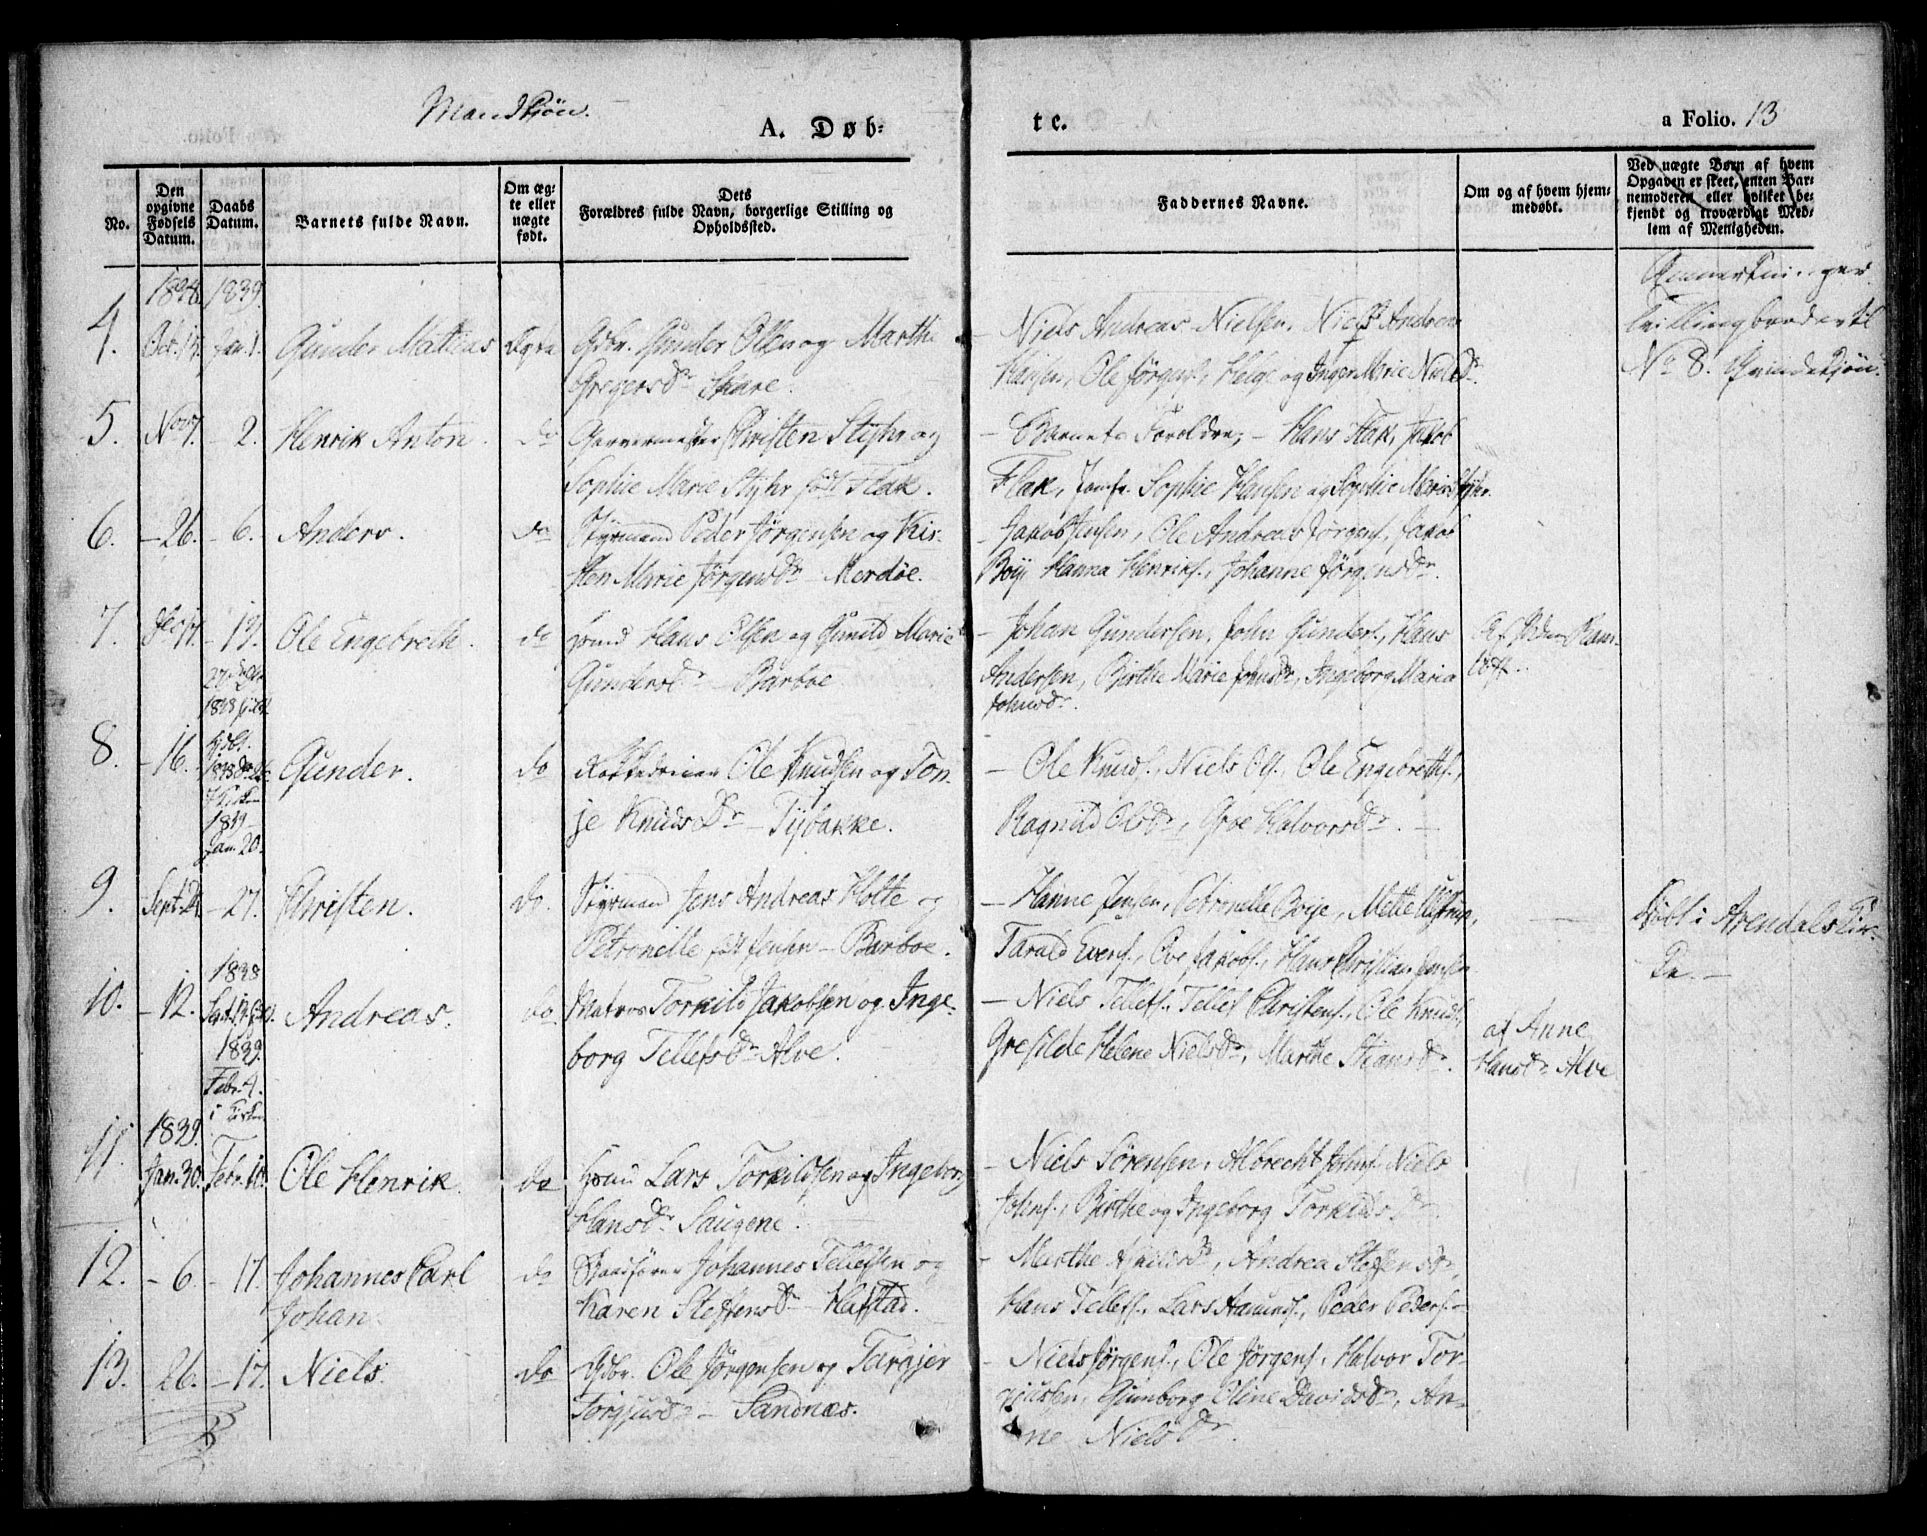 Mandkjøn.
A. Døb-
te.
a Folio. 13
No.
Den opgivne Fødsels Datum.
Daabs Datum.
Barnets fulde Navn.
Om ægte eller uægte født.
Dets
Forældres fulde Navn, borgerlige Stilling og
Opholdssted.
Faddernes Navne.
Om og af hvem hjem-
medøbt.
Ved uægte Børn af hvem
Opgaven er skeet, enten Bar-
nemoderen eller hvilket be-
kjendt og troværdigt Med-
lem af Menigheden.
1838. 1839.
4. Jan. 1. Gunder Mathias Ægte Gdbr. Gunder Olsen og Marthe
Gregersdr
Niels Andreas Nielsen, Niels Andreas
Hansen, Ole Jørgens., Helge og Inger Marie Nielsdr.
Anmerkninger
Tvillingbroder til
No 8. Qvindekjøn.
5. Nov. - 2. Henrik Anton. do Garvermester Christen Styhr og
Sophie Marie Styhr født Flak.
- Barnets Forældre, - Hans Flak, Jakob
Flak, Jomfr. Sophie Hansen og Sophie Marie Styhr.
6. - 26. - 6. Anders. do Styrmand Peder Jørgensen og Kir-
sten Marie Jørgensdr Merdøe.
- Jakob Jensen, Ole Andreas Jørgens., Jakob
Boije Hanna Henriks., Johanne Jørgensdr.
7. - 13. Ole Engebreth. do Hans Olsen og Gunild Marie
Gundersdr - Barboe
- Johan Gundersen, John Gunders., Hans
Andersen, Birthe Marie Johnsdr, Ingeborg Maria
Johnsdr.
8. - 16. Gunder. do Ole Knudsen og Ton-
je Knudsdr - Tybakke.
1839
Jan. 20.
- Ole Knuds., Niels Ols., Ole Engebreths.,
Ragnild Olsdr, Groe Halvorsdr. -
9. Sept. 21. - 27. Christen. do. Styrmand Jens Andreas Holte og
Petronelle født Jensen - Barboe.
- Hanne Jensen, Petronelle Boije, Mette
Tarald Evers., Ove Jakobs., Hans Christian Jensen
Døbt i Arendals Kir-
ke. -
10. - 12. 1838 Andreas. do. Matros Torkild Jakobsen og Inge-
borg Tellefsdr Alve.
1839.
Febr. 4.
i Kirken
- Niels Tellefs. Tellef Christens., Ole Knuds.,
Gresilde Helene Nielsdr, Marthe Stiansdr.
af Anne
Hansdr Alve
11. 1839.
Jan. 30. Febr. 10. Ole Henrik. do Lars Torkildsen og Ingeborg
Hansdr Saugene.
- Niels Sørensen, Albrecht Johns. Niels
Johns., Birthe og Ingeborg Torkildsdr.
12. - 6. - 17. Johannes Carl
Johan. do Johannes Tellefsen og
Karen Steffensdr - Hafstad.
- Marthe Andrea Steffensdr,
Hans Tellefs. Lars Aamunds., Peder Peders. -
13. 26. - 17. Niels. do Gdbr. Ole Jørgensen og Targjer
Torgjusdr - Sandnæs.
- Niels Jørgens., Ole Jørgens., Halvor Tor-
gjusen, Gunborg Oline Davidsdr, An-
ne Nielsdr.